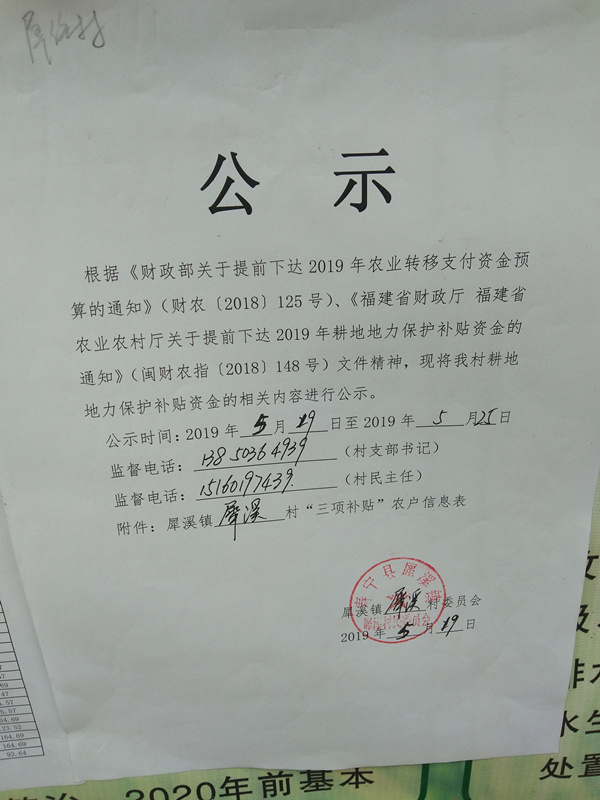 公示
根据《财政部关于提前下达2019年农业转移支付资金预
算的通知》(财农〔2018〕125号)、《福建省财政厅 福建省
农业农村厅关于提前下达2019年耕地地力保护补贴资金的
通知》(闽财农指〔2018〕148号)文件精神，现将我村耕地
地力保护补贴资金的相关内容进行公示。
公示时间：2019年5月19日至2019年5月25日
监督电话：13850364939(村支部书记)
监督电话：15160197439(村民主任)
附件：犀溪镇犀溪村“三项补贴”农户信息表
寿宁县犀溪镇
犀溪镇犀溪村委员会
2019年5月19日
164.69
164.69
92.64
2020年前基本
水生
处置